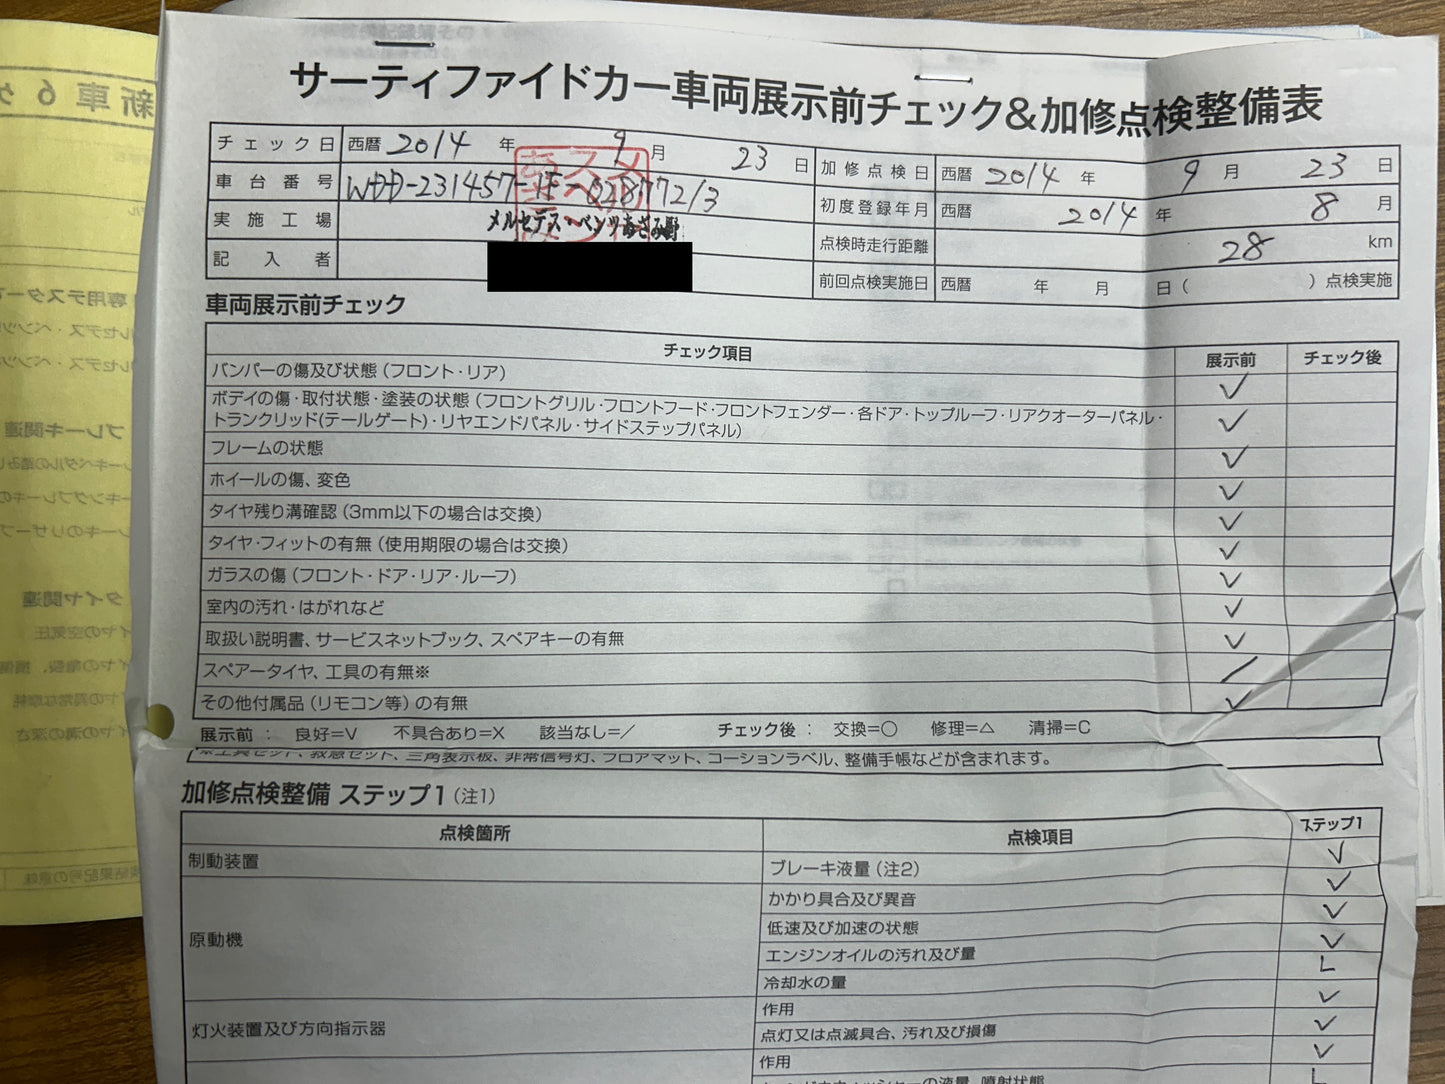 サーティファイドカー車両展示前チェック&加修点検整備表
チェック日 西暦 2014 年 9 月 23 日 加修点検日 西暦 2014 年 9 月 23 日
車台番号 WDD-231457- 初度登録年月 西暦 2014 年 8 月
実施工場 メルセデス・ベンツあざみ野 点検時走行距離 28 km
記入者 前回点検実施日 西暦 年 月 日( )点検実施
車両展示前チェック
チェック項目 展示前 チェック後
バンパーの傷及び状態(フロント・リア) ✓
ボデイの傷・取付状態・塗装の状態(フロントグリル・フロントフード・フロントフェンダー・各ドア・トップルーフ・リアクオーターパネル・
トランクリッド(テールゲート)・リヤエンドパネル・サイドステップパネル) ✓
フレームの状態 ✓
ホイールの傷、変色 ✓
タイヤ残り溝確認(3mm以下の場合は交換) ✓
タイヤ・フィットの有無(使用期限の場合は交換) ✓
ガラスの傷(フロント・ドア・リア・ルーフ) ✓
室内の汚れ・はがれなど ✓
取扱い説明書、サービスネットブック、スペアキーの有無 ✓
スペアータイヤ、工具の有無※ /
その他付属品(リモコン等)の有無 ✓
展示前: 良好=V 不具合あり=X 該当なし=/ チェック後: 交換=○ 修理=△ 清掃=C
※工具セット、救急セット、三角表示板、非常信号灯、フロアマット、コーションラベル、整備手帳などが含まれます。
加修点検整備 ステップ1(注1)
点検箇所 点検項目 ステップ1
制動装置 ブレーキ液量(注2) ✓
かかり具合及び異音 ✓
低速及び加速の状態 ✓
原動機 エンジンオイルの汚れ及び量 ✓
冷却水の量 L
作用 ✓
灯火装置及び方向指示器 点灯又は点滅具合、汚れ及び損傷 ✓
作用 ✓
の液量、噴射状態 L